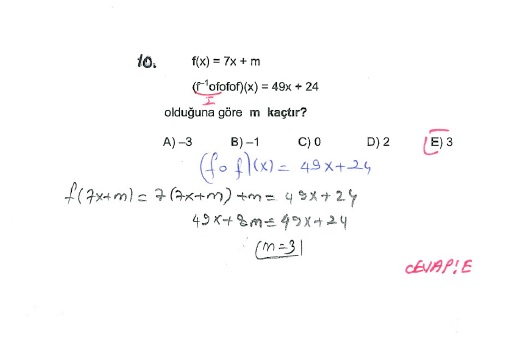 10. f(x) = 7x + m
(f⁻¹ofofof)(x) = 49x + 24
I
olduğuna göre m kaçtır?
A) –3 B) –1 C) 0 D) 2 E) 3
(fof)(x) = 49x+24
f(7x+m) = 7(7x+m)+m = 49x+24
49x+8m = 49x+24
(m=3)
CEVAP:E